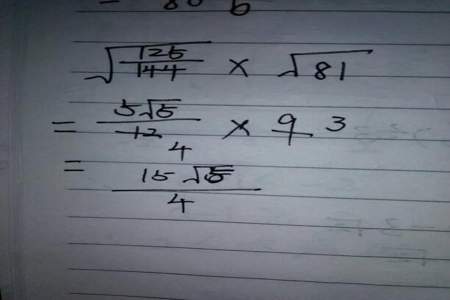 = 80 b
√(125/144) × √81
= 5√5/12 4 × 9 3
= 15√5/4